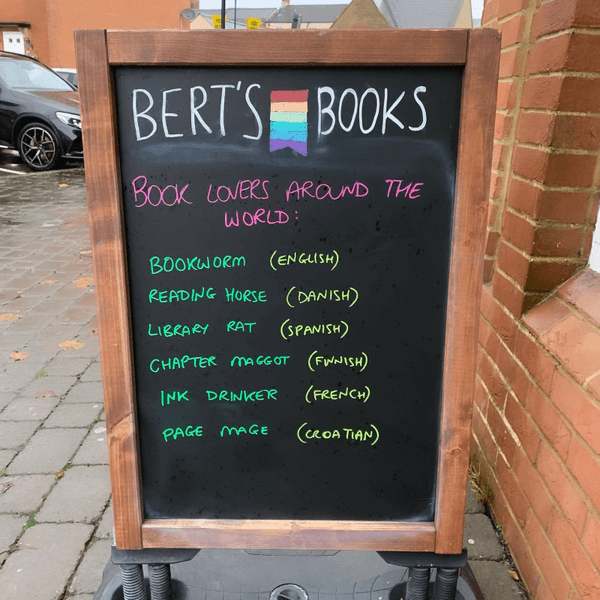 BERT'S BOOKS
BOOK LOVERS AROUND THE
WORLD:
BOOKWORM (ENGLISH)
READING HORSE (DANISH)
LIBRARY RAT (SPANISH)
CHAPTER MAGGOT (FINNISH)
INK DRINKER (FRENCH)
PAGE MAGE (CROATIAN)